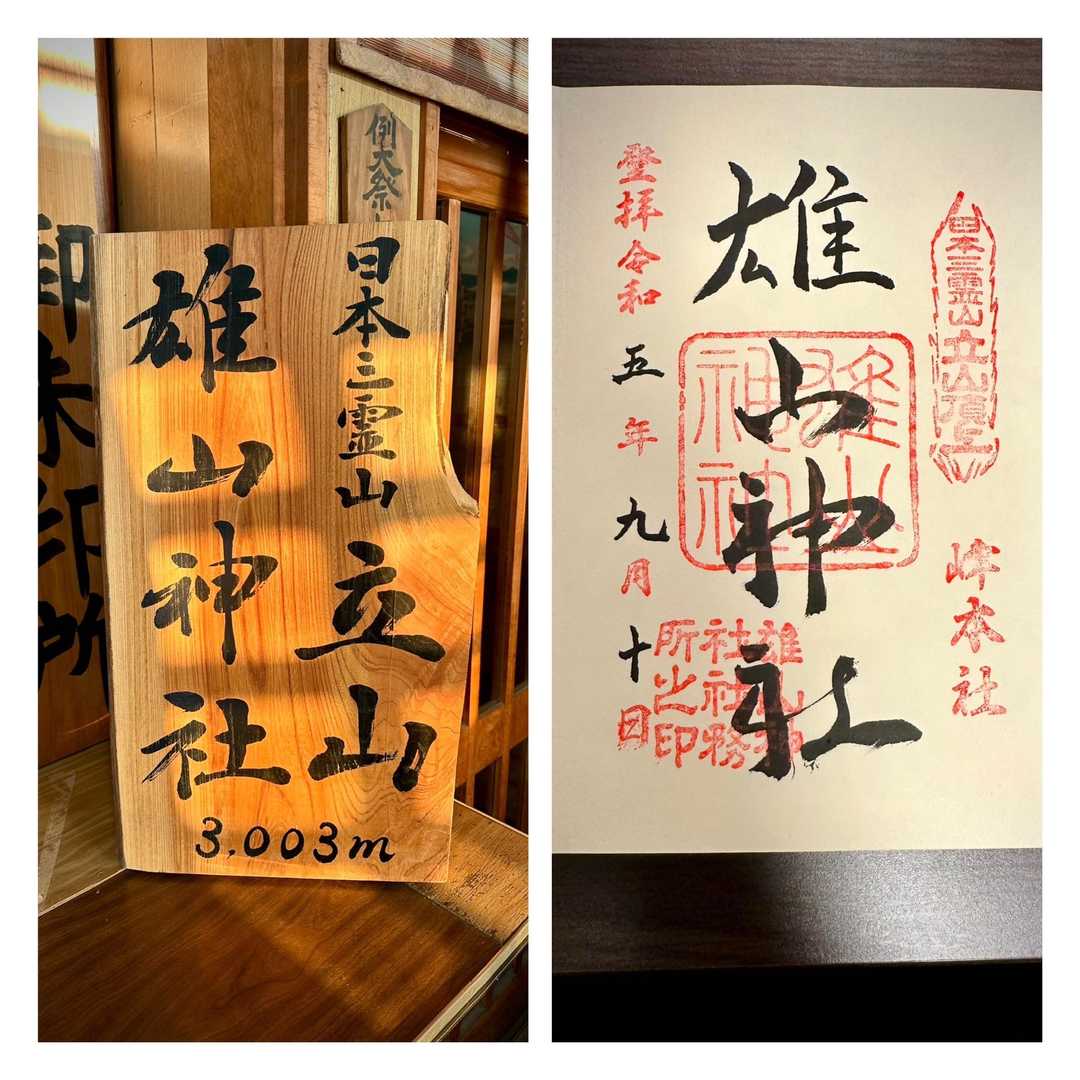 例大祭
日本三霊山 立山
雄山神社
3,003m
御朱印所
日本三霊山立山頂上
峰本社
雄山神社
雄山神社
雄山神社社務所之印
登拝令和五年九月十日